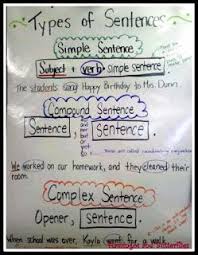 Types of Sentences
Simple Sentence
Subject + verb = simple sentence
The students sang Happy Birthday to Mrs. Dunn.
Compound Sentence
Sentence, and but or so yet sentence.
We worked on our homework, and they cleaned their
room.
Complex Sentence
Opener, sentence.
When school was over, Kayla went for a walk.